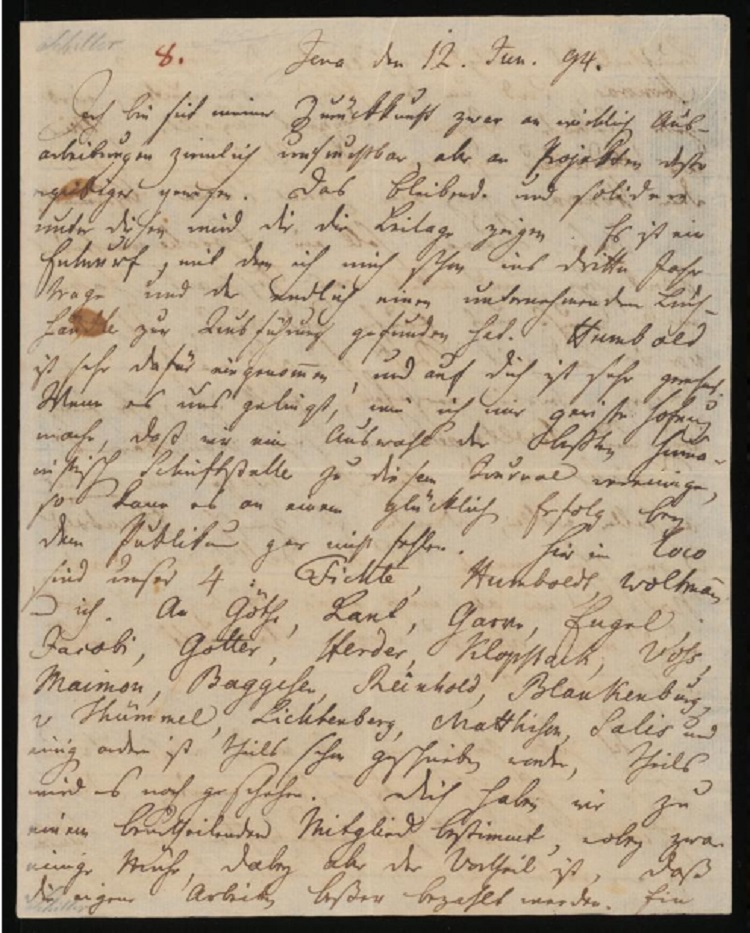 Schiller
8. Jena den 12. Jun. 94.
Ich bin seit meiner Zurückkunft zwar an wirklich Aus-
arbeitungen ziemlich unfruchtbar, aber an Projekten desto
ergiebiger gewesen. Das bleibende und solidere
unter diesen wird dir die Beilage zeigen. Es ist ein
Entwurf, mit dem ich mich schon ins dritte Jahr
trage und der endlich einen unternehmenden Buch-
händle zur Ausführung gefunden hat. Humbold
ist sehr dafür eingenommen, und auf dich ist sehr gerechnet.
Wenn es uns gelingt, wie ich mir gewisse Hofnung
mache, daß wir eine Auswahl der beßten huma-
nistisch Schriftsteller zu diesem Journal vereinigen,
so kann es an einem glücklich Erfolg bey
dem Publikum gar nicht fehlen. Hier in Loco
sind unser 4: Fichte, Humboldt, Woltmann
u ich. An Göthe, Kant, Garve, Engel
Jacobi, Gotter, Herder, Klopstock, Voß,
Maimon, Baggesen, Reinhold, Blankenburg,
v Thümmel, Lichtenberg, Matthisson, Salis und
einig andre ist theils schon geschrieben worden, theils
wird es noch geschehen. Dich haben wir zu
einem beurtheilenden Mitglied bestimmt, wobey zwar
einige Mühe, dabey aber der Vortheil ist, daß
die eigene Arbeiten beßer bezahlt werden. Ein
Schiller